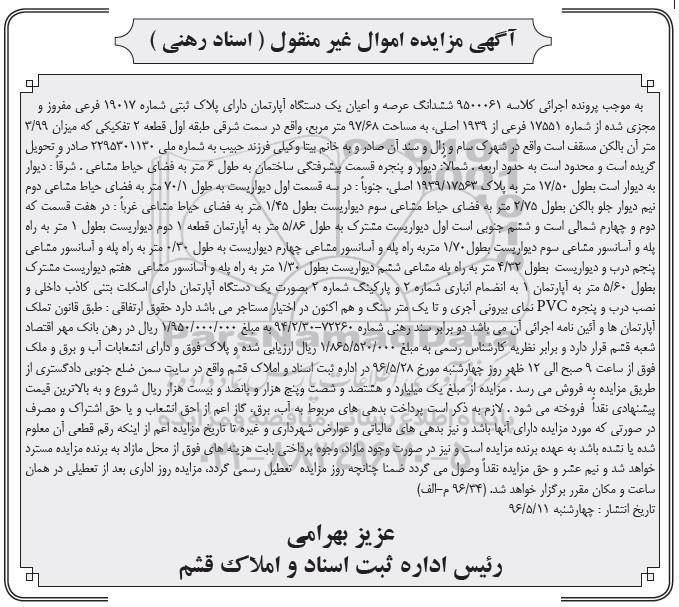 آگهی مزایده اموال غیر منقول ( اسناد رهنی )
به موجب پرونده اجرائی کلاسه ۹۵۰۰۰۶۱ ششدانگ عرصه و اعیان یک دستگاه آپارتمان دارای پلاک ثبتی شماره ۱۹۰۱۷ فرعی مفروز و
مجزی شده از شماره ۱۷۵۵۱ فرعی از ۱۹۳۹ اصلی، به مساحت ۹۷/۶۸ متر مربع، واقع در سمت شرقی طبقه اول قطعه ۲ تفکیکی که میزان ۳/۹۹
متر آن بالکن مسقف است واقع در شهرک سام و زال و سند آن صادر و به خانم بیتا وکیلی فرزند حبیب به شماره ملی ۲۲۹۵۳۰۱۱۳۰ صادر و تحویل
گریده است و محدود است به حدود اربعه . شمالاً: دیوار و پنجره قسمت پیشرفتگی ساختمان به طول ۶ متر به فضای حیاط مشاعی . شرقاً : دیوار
به دیوار است بطول ۱۷/۵۰ متر به پلاک ۱۹۳۹/۱۷۵۶۳ اصلی. جنوباً : در سه قسمت اول دیواریست به طول ۷۰/۱ متر به فضای حیاط مشاعی دوم
نیم دیوار جلو بالکن بطول ۲/۷۵ متر به فضای حیاط مشاعی سوم دیواریست بطول ۱/۴۵ متر به فضای حیاط مشاعی غرباً : در هفت قسمت که
دوم و چهارم شمالی است و ششم جنوبی است اول دیواریست مشترک به طول ۵/۸۶ متر به آپارتمان قطعه ۱ دوم دیواریست بطول ۱ متر به راه
پله و آسانسور مشاعی سوم دیواریست بطول۱/۷۰ متربه راه پله و آسانسور مشاعی چهارم دیواریست به طول ۰/۳۰ متر به راه پله و آسانسور مشاعی
پنجم درب و دیواریست بطول ۴/۳۲ متر به راه پله مشاعی ششم دیواریست بطول ۱/۳۰ متر به راه پله و آسانسور مشاعی هفتم دیواریست مشترک
بطول ۵/۶۰ متر به آپارتمان ۱ به انضمام انباری شماره ۲ و پارکینگ شماره ۲ بصورت یک دستگاه آپارتمان دارای اسکلت بتنی کاذب داخلی و
نصب درب و پنجره PVC نمای بیرونی آجری و تا یک متر سنگ و هم اکنون در اختیار مستاجر می باشد دارد حقوق ارتفاقی : طبق قانون تملک
آپارتمان ها و آئین نامه اجرائی آن می باشد دو برابر سند رهنی شماره ۷۲۲۶۰-۹۴/۲/۳۰ به مبلغ ۱/۹۵۰/۰۰۰/۰۰۰ ریال در رهن بانک مهر اقتصاد
شعبه قشم قرار دارد و برابر نظریه کارشناس رسمی به مبلغ ۱/۸۶۵/۵۲۰/۰۰۰ ریال ارزیابی شده و پلاک فوق و دارای انشعابات آب و برق و ملک
فوق از ساعت ۹ صبح الی ۱۲ ظهر روز چهارشنبه مورخ ۹۶/۵/۲۸ در اداره ثبت اسناد و املاک قشم واقع در سایت سمن ضلع جنوبی دادگستری از
طریق مزایده به فروش می رسد . مزایده از مبلغ یک میلیارد و هشتصد و شصت وپنج هزار و پانصد و بیست هزار ریال شروع و به بالاترین قیمت
پیشنهادی نقداً فروخته می شود . لازم به ذکر است پرداخت بدهی های مربوط به آب، برق، گاز اعم از حق انشعاب و یا حق اشتراک و مصرف
در صورتی که مورد مزایده دارای آنها باشد و نیز بدهی های مالیاتی و عوارض شهرداری و غیره تا تاریخ مزایده اعم از اینکه رقم قطعی آن معلوم
شده یا نشده باشد به عهده برنده مزایده است و نیز در صورت وجود مازاد، وجوه پرداختی بابت هزینه های فوق از محل مازاد به برنده مزایده مسترد
خواهد شد و نیم عشر و حق مزایده نقداً وصول می گردد ضمنا چنانچه روز مزایده تعطیل رسمی گردد، مزایده روز اداری بعد از تعطیلی در همان
ساعت و مکان مقرر برگزار خواهد شد. (۹۶/۳۴ م-الف)
تاریخ انتشار : چهارشنبه ۹۶/۵/۱۱
عزیز بهرامی
رئیس اداره ثبت اسناد و املاک قشم